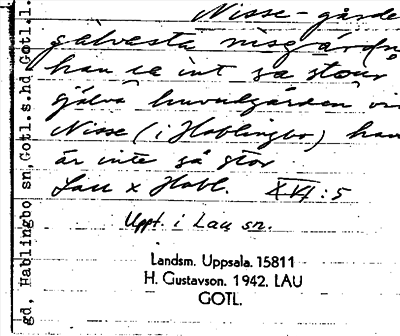 Nisse-gårde
självasta nisegårdn
han ä int sa stour
själva huvudgården vi
Nisse (i Hablingbo) han
är inte så stor
Lau x Habl. XVI:5
Uppt. i Lau sn.
Landsm. Uppsala. 15811
H. Gustavson. 1942. LAU
GOTL.
gd, Hablingbo sn, Gotl.s.hd Gotl.l.